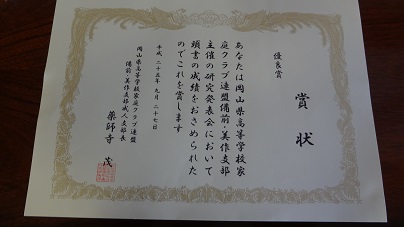 賞状
優良賞
あなたは岡山県高等学校家
庭クラブ連盟備前・美作支部
主催の研究発表会において
頭書の成績をおさめられた
のでこれを賞します
平成二十五年九月二十七日
岡山県高等学校家庭クラブ連盟
備前・美作支部成人支部長
薬師寺茂